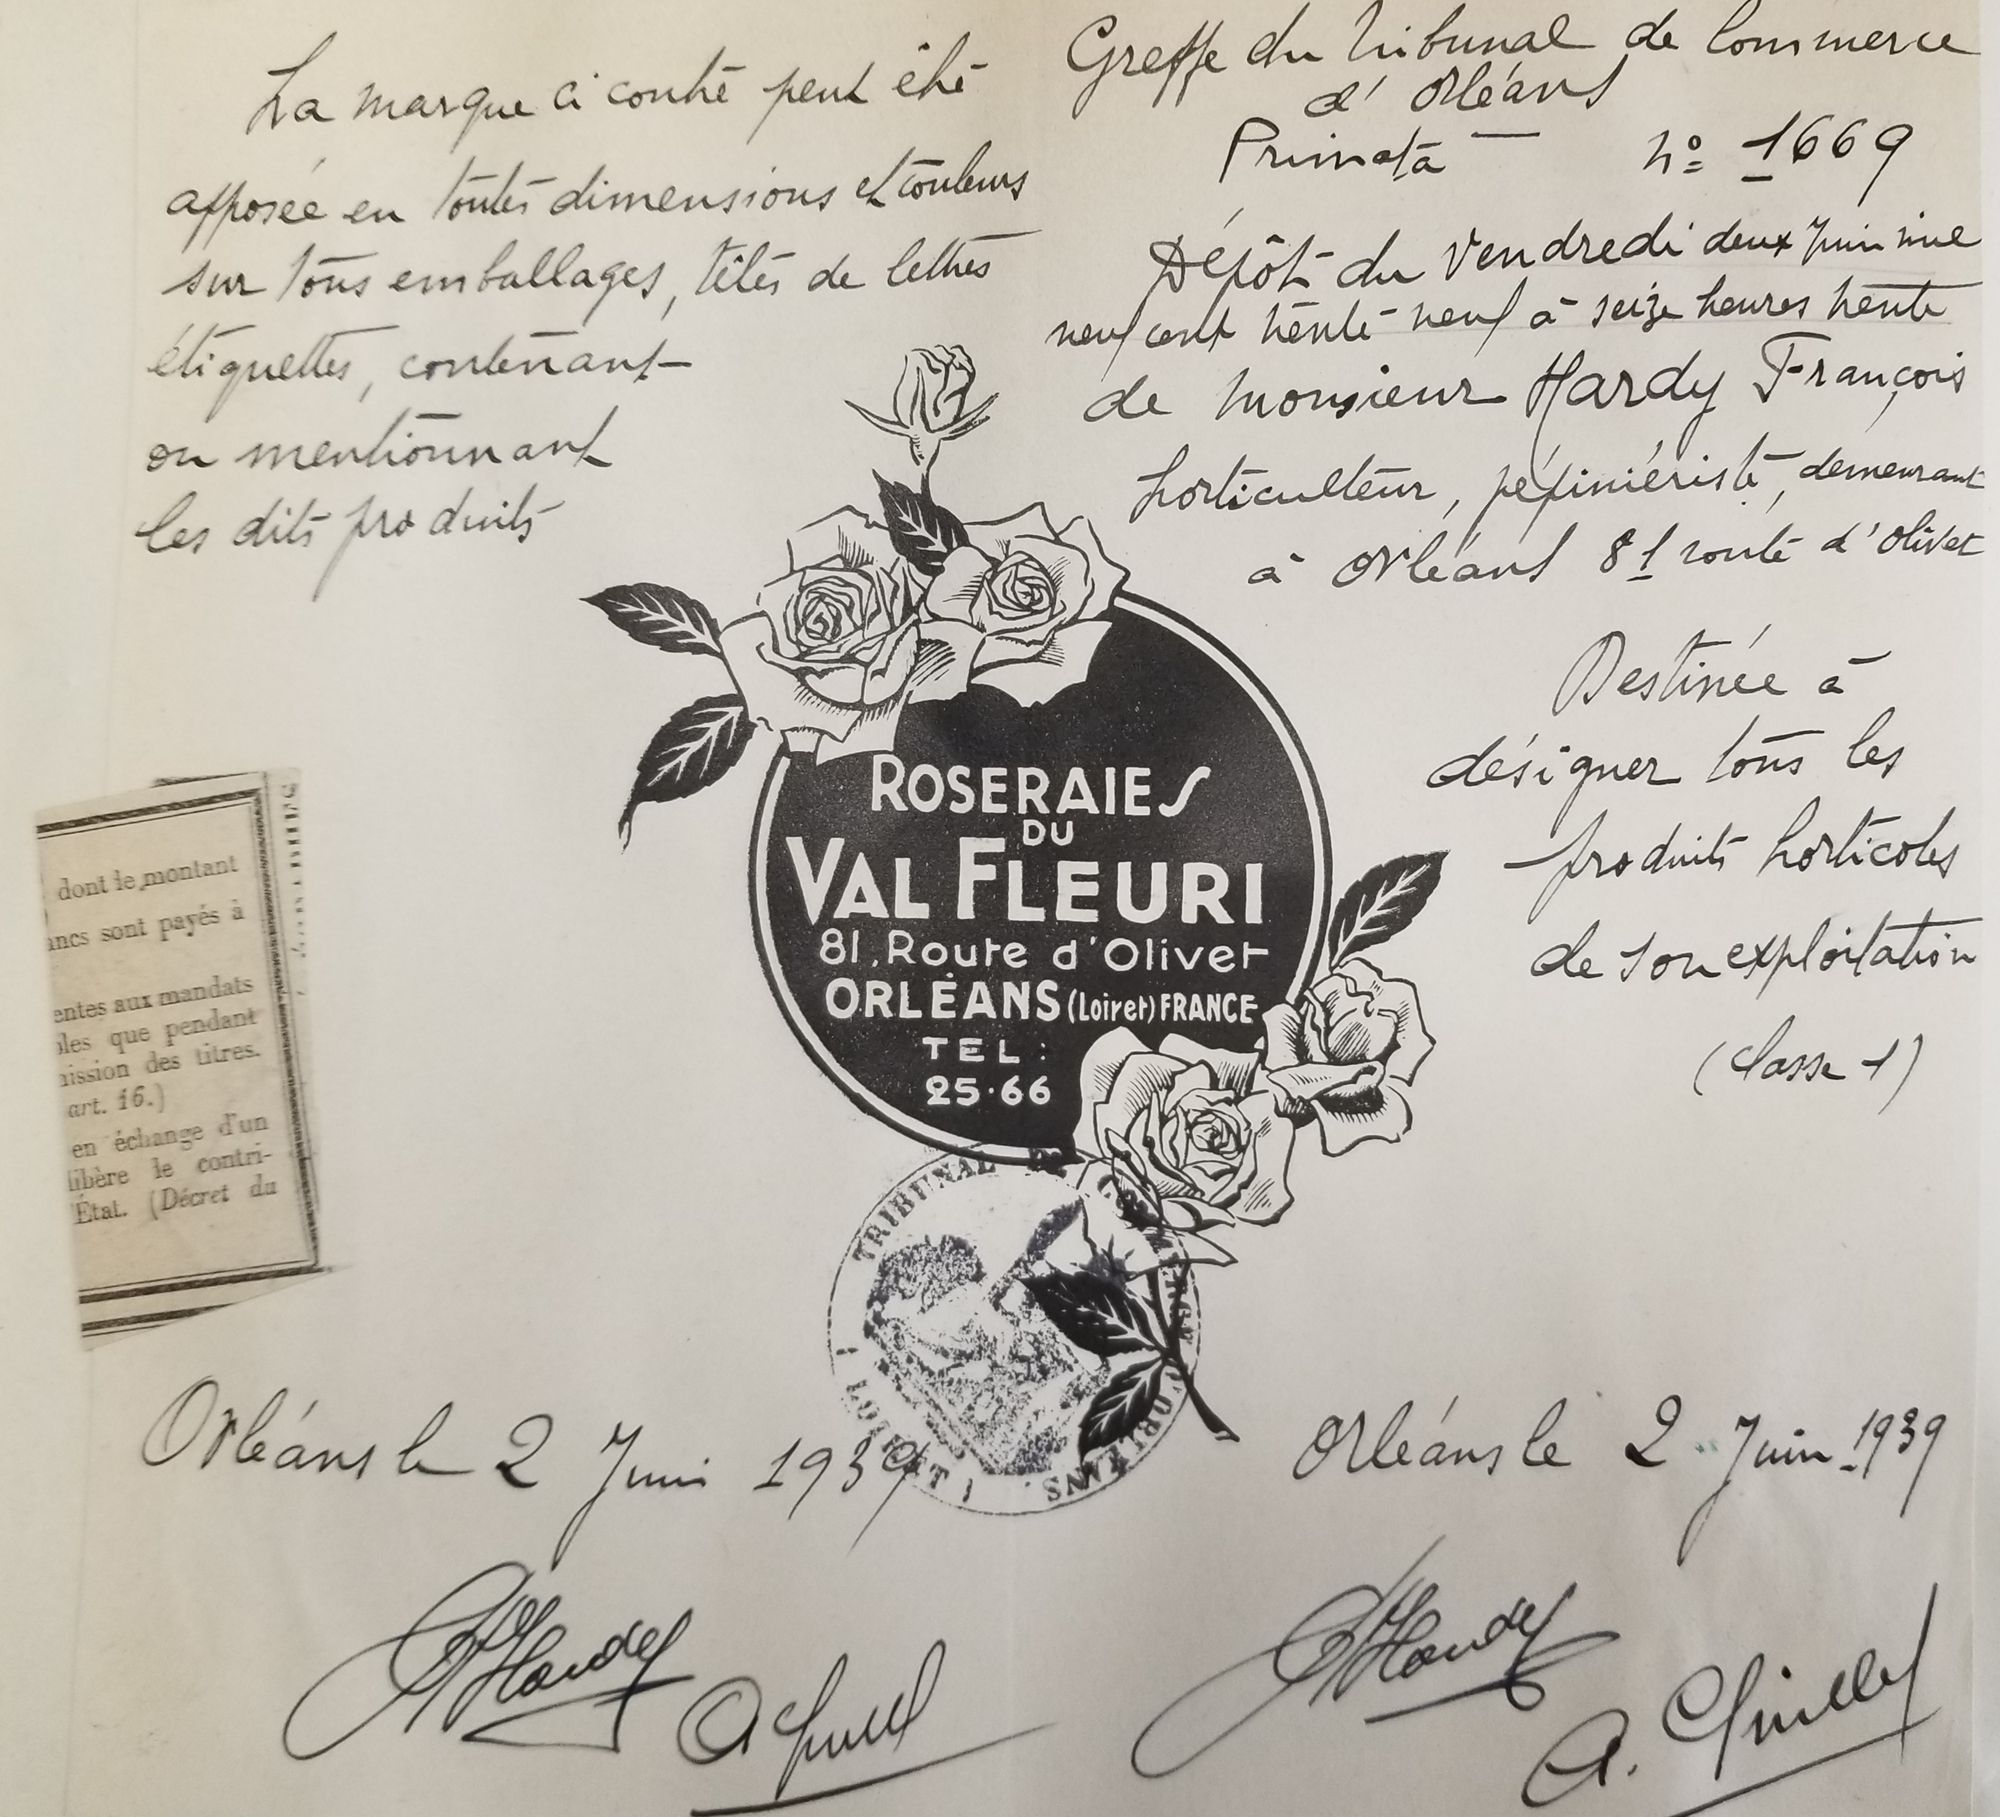 La marque ci contre peut être
apposée en toutes dimensions et couleurs
sur tous emballages, têtes de lettres
étiquettes, contenant
ou mentionnant
les dits produits
Greffe du Tribunal de Commerce
d'Orléans
Primata n° 1669
Dépôt du Vendredi deux Juin mil
neuf cent trente neuf à seize heures trente
de Monsieur Hardy François
horticulteur, pépiniériste, demeurant
à Orléans 81 route d'Olivet
Destinée à
désigner tous les
produits horticoles
de son exploitation
(Classe 1)
ROSERAIES
DU
VAL FLEURI
81, Route d'Olivet
ORLÉANS (Loiret) FRANCE
TEL :
25·66
dont le montant
ancs sont payés à
entes aux mandats
bles que pendant
nission des titres.
art. 16.)
en échange d'un
libère le contri-
État. (Décret du
TRIBUNAL DE COMMERCE D'ORLÉANS.
(LOIRET)
Orléans le 2 Juin 1939
Orléans le 2 Juin 1939
Hardy
Hardy